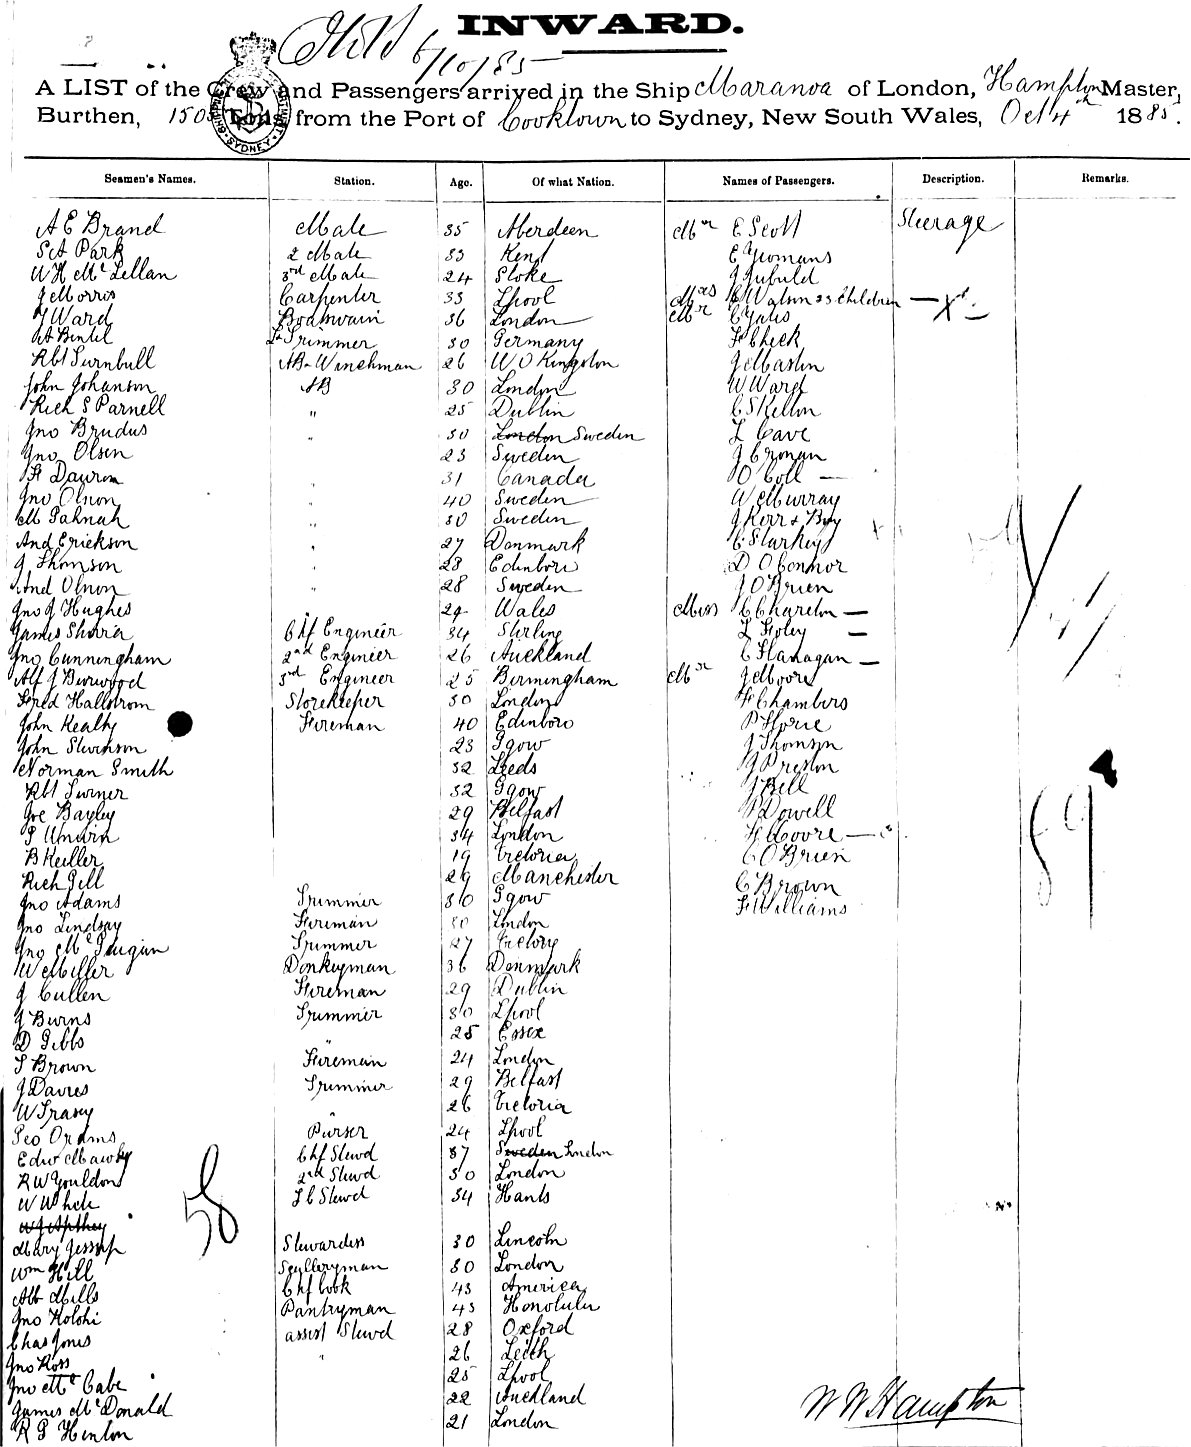 INWARD.
6/10/85
A LIST of the Crew and Passengers arrived in the Ship Maranoa of London, Hampton Master,
Burthen, 1505 Tons from the Port of Cooktown to Sydney, New South Wales, Oct 4th 1885.
Seamen's Names. Station. Age. Of what Nation. Names of Passengers. Description. Remarks.
A E Brand Mate 35 Aberdeen Mr E Scott Steerage
Park 2 Mate 33 Kent E Yeomans
W H McLellan 3rd Mate 24 Stoke J
J Morris Carpenter 33 Lpool Mrs Watson & 3 Children
J Ward Boatswain 36 London Mr C Yates
A Lr Trimmer 30 Germany F Cheek
Rbt Turnbull AB & Winchman 26 W O Kingston J Maslin
John Johanson AB 30 London W Ward
Rich S Parnell " 25 Dublin C Skelton
Jno Brudus " 30 London Sweden L Cave
Jno Olsen 23 Sweden J Cronan
F Dawson " 31 Canada O Coll
Jno Olson " 40 Sweden W Murray
M " 30 Sweden J Kerr & Boy
And Erickson " 27 Denmark C Starkey
J Thomson " 28 Edinboro D O Connor
And Olson " 28 Sweden J O Brien
Jno J Hughes 24 Wales Miss C Charlton
James Chf Engineer 34 Stirling L Foley
Jno Cunningham 2nd Engineer 26 Auckland C Flanagan
Alf J Burwood 3rd Engineer 25 Birmingham Mr J Moore
Fred Hallstrom Storekeeper 30 London F Chambers
John Kealty Fireman 40 Edinboro P Horie
John Stevenson 23 Ggow J Thomson
Norman Smith 32 Leeds J Preston
Rbt Turner 32 Ggow J Bell
Joe Bayley 29 Belfast P Dowell
P Unwin 34 London F Moore
B Keiller 19 Victoria C O Brien
Rich Gill 29 Manchester C Brown
Jno Adams Trimmer 30 Ggow F Williams
Jno Lindsay Fireman 30 London
Jno Mc Trimmer 27
W Miller Donkeyman 36 Denmark
J Cullen Fireman 29 Dublin
J Burns Trimmer 30 Lpool
D Gibbs " 25 Essex
T Brown Fireman 24 London
J Davies Trimmer 29 Belfast
W Tracey " 26 Victoria
Geo Orams Purser 24 Lpool
Edw Mawby Chf Stewd 37 Sweden London
R W Gouldon 2nd Stewd 30 London
W White F C Stewd 34 Hants
Mary Jessop Stewardess 30 Lincoln
Wm Hill Sculleryman 30 London
Alb Mills Chf Cook 43 America
Jno Kolohi Pantryman 43 Honolulu
Chas Jones assist Stewd 28 Oxford
Jno Ross " 26 Leith
Jno McCabe 25 Lpool
James McDonald 22 Auckland
R G Henton 21 London
58
89
W W Hampton